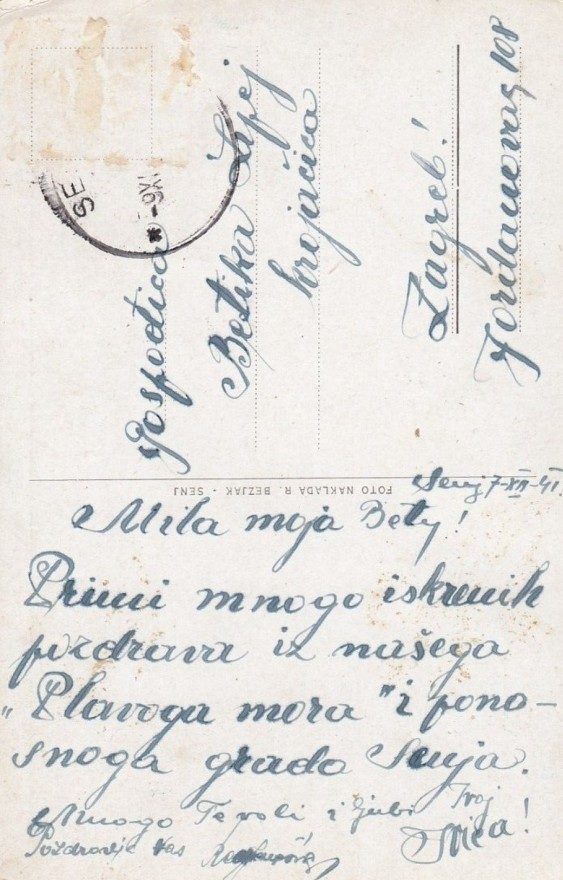 Senj 7-XII-41.
Mila moja Bety!
Primi mnogo iskrenih
pozdrava iz našega
„Plavoga mora" i pono-
snoga grada Senja.
Mnogo Te voli i ljubi Tvoj
Ivica!
Pozdravlja Vas
FOTO NAKLADA R. BEZJAK - SENJ
Gospodica
Betika Lipej
krojačica
Zagreb!
Jordanovac 108
SE
* -9 XI